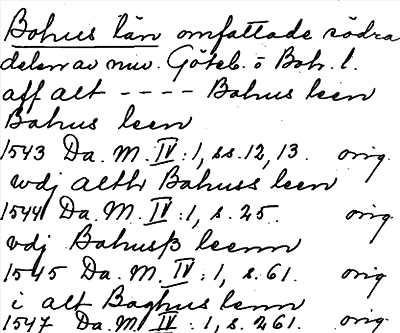 Bohus län omfattade södra
delen av nuv. Göteb. o Boh. l.
aff alt ---- Bahus leen
Bahus leen
1543 Da. M. IV:1, ss. 12, 13. orig.
wdj althr Bahuss leen
1544 Da. M. IV:1, s. 25. orig
vdj Bahusß leenn
1545 Da. M. IV:1, s. 61. orig
i alt Baghus lenn
1547 Da. M. IV:1, s. 261. orig